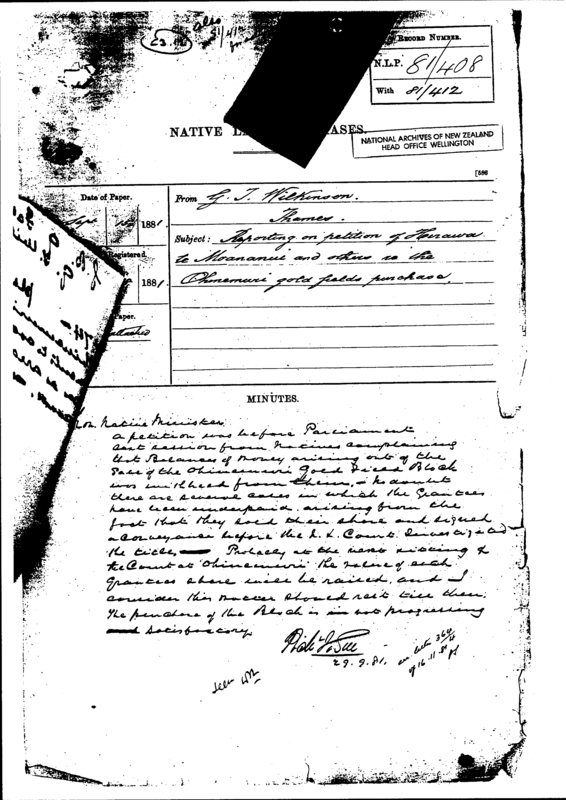 also
81/41
RECORD NUMBER.
N.L.P. 81/408
With 81/412
NATIVE
NATIONAL ARCHIVES OF NEW ZEALAND
HEAD OFFICE WELLINGTON
Date of Paper.
1881
Registered.
1881.
Paper.
From G. T. Wilkinson.
Thames.
Subject: Reporting on petition of
to Moananui and others re the
Ohinemuri gold fields purchase.
MINUTES.
Hon. Native Minister
A petition was before Parliament
last session from Natives complaining
that Balances of money arising out of the
Sale of the Ohinemuri Gold Field Block
was withheld from them, no doubt
there are several cases in which the Grantees
have been underpaid arising from the
fact that they sold their share and signed
a Conveyance before the N. L. Court Investigated
the title. Probably at the next sitting of
the Court at Ohinemuri the value of each
Grantees share will be raised, and I
consider this matter should rest till then.
The purchase of the Block is not progressing
satisfactory
29.9.81.
364
of 16.11.81
seen